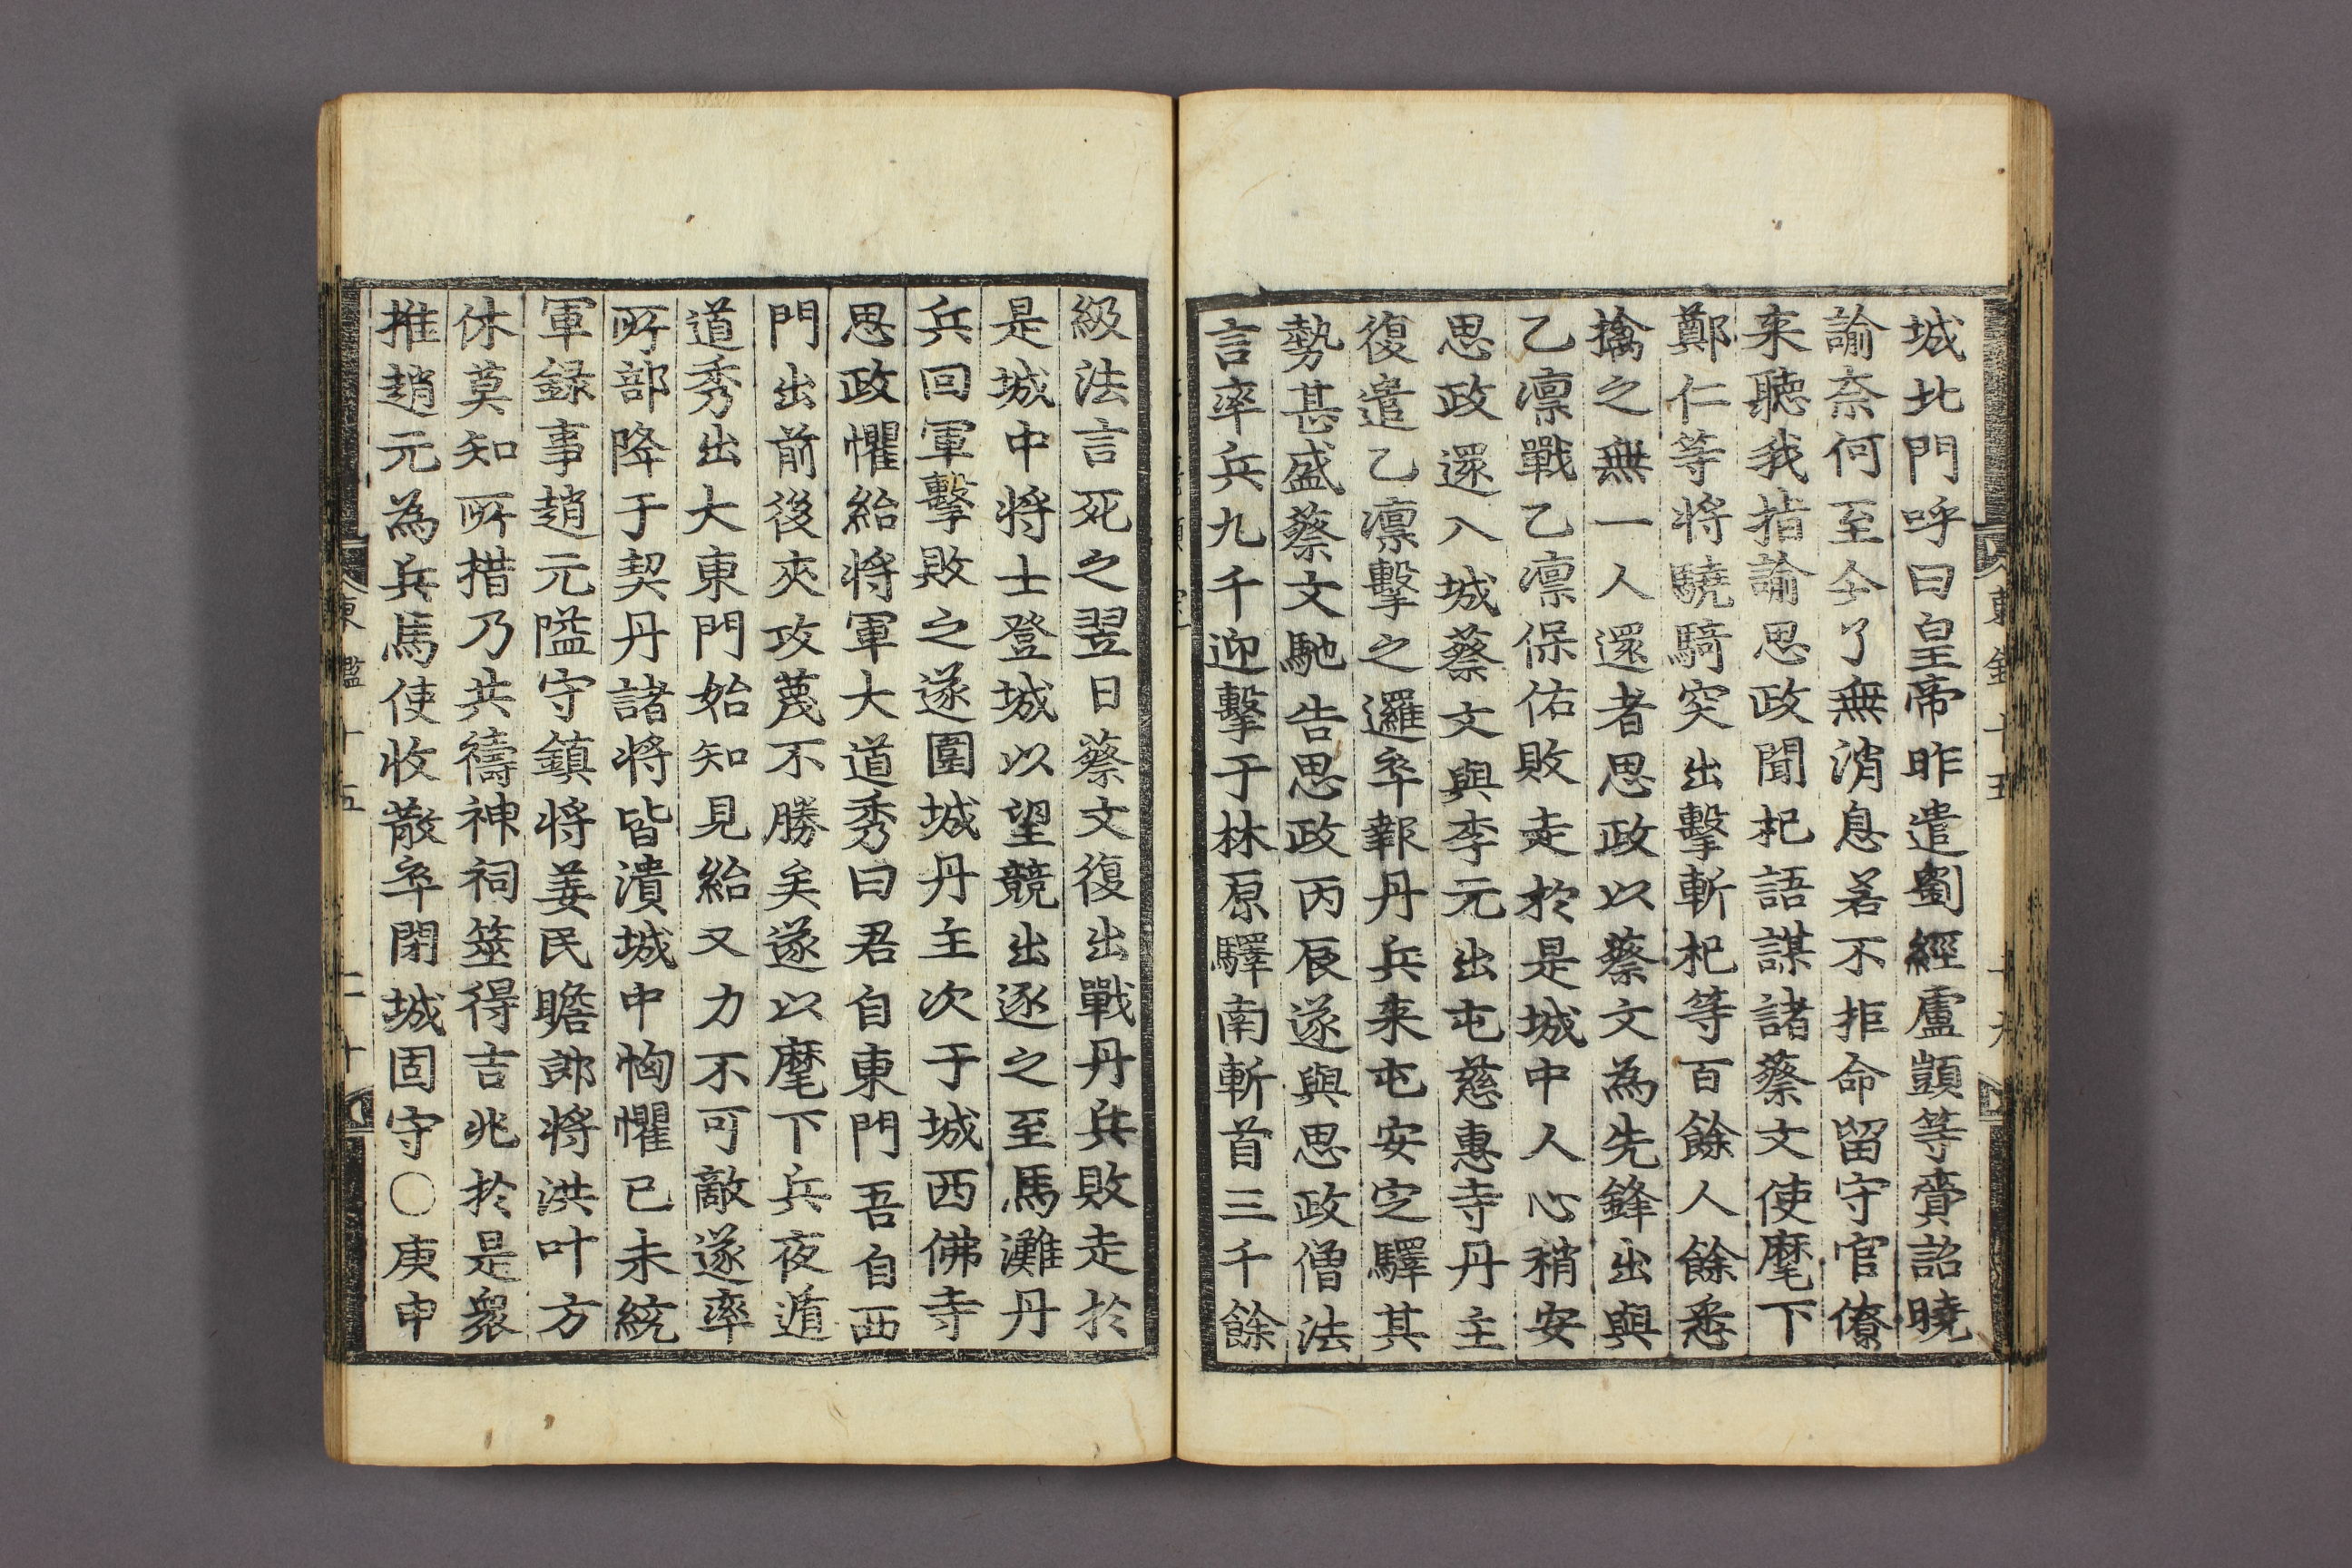 城北門呼曰皇帝昨遣劉經盧顗等賫詔曉
諭奈何至今了無消息若不拒命留守官僚
来聽我指諭思政聞杞語謀諸蔡文使麾下
鄭仁等將驍騎突出擊斬杞等百餘人餘悉
擒之無一人還者思政以蔡文為先鋒出與
乙凛戰乙凛保佑敗走於是城中人心稍安
思政還入城蔡文與李元出屯慈惠寺丹主
復遣乙凛擊之邏卒報丹兵来屯安定驛其
勢甚盛蔡文馳告思政丙辰遂與思政僧法
言率兵九千迎擊于林原驛南斬首三千餘
級法言死之翌日蔡文復出戰丹兵敗走於
是城中将士登城以望競出逐之至馬灘丹
兵回軍擊敗之遂圍城丹主次于城西佛寺
思政懼紿将軍大道秀曰君自東門吾自西
門出前後夾攻蔑不勝矣遂以麾下兵夜遁
道秀出大東門始知見紿又力不可敵遂率
所部降于契丹諸将皆潰城中恟懼已未統
軍録事趙元隘守鎮将姜民瞻郎将洪叶方
休莫知所措乃共禱神祠筮得吉兆於是衆
推趙元為兵馬使收散卒閉城固守〇庚申
東鑑十五 二十